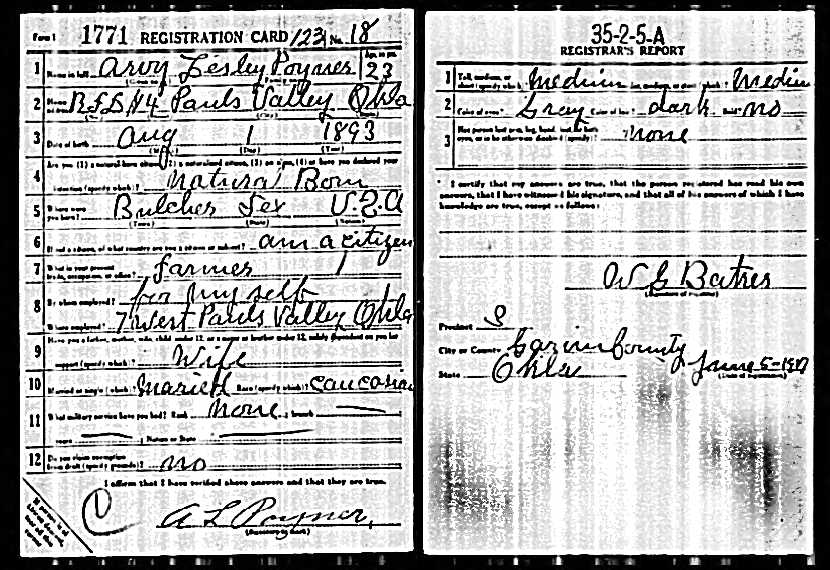 Form 1 1771 REGISTRATION CARD 123 No. 18
1 Name in full Arvy Lesley Poyner Age, in yrs. 23
2 Home R.F.D. #4 Pauls Valley Okla
3 Date of birth Aug 1 1893
(Month) (Day) (Year)
4 Are you (1) a natural born citizen, (2) a naturalized citizen, (3) an alien, (4) or have you declared your
intention (specify which)? Natural Born
5 Where were you born? Butcher Tex U.S.A
(Town) (State) (Nation)
6 If not a citizen, of what country are you a citizen or subject? am a citizen
7 What is your present trade, occupation, or office? farmer
8 By whom employed? for my self
Where employed? 7 West Pauls Valley Okla
9 Have you a father, mother, wife, child under 12, or a sister or brother under 12, solely dependent on you for
support (specify which)? Wife
10 Married or single (which)? Married Race (specify which)? Caucasian
11 What military service have you had? Rank None ; branch —
years — ; Nation or State —
12 Do you claim exemption from draft (specify grounds)? no
I affirm that I have verified above answers and that they are true.
A L Poyner
35-2-5-A
REGISTRAR'S REPORT
1 Tall, medium, or short (specify which)? Medium Slender, medium, or stout (which)? Medium
2 Color of eyes? Gray Color of hair? dark Bald? no
3 Has person lost arm, leg, hand, foot, or both eyes, or is he otherwise disabled (specify)? none
I certify that my answers are true, that the person registered has read his own
answers, that I have witnessed his signature, and that all of his answers of which I have
knowledge are true, except as follows:
W G Bates
(Signature of registrar)
Precinct 8
City or County Garvin County
State Okla June 5-1917
(Date of registration)